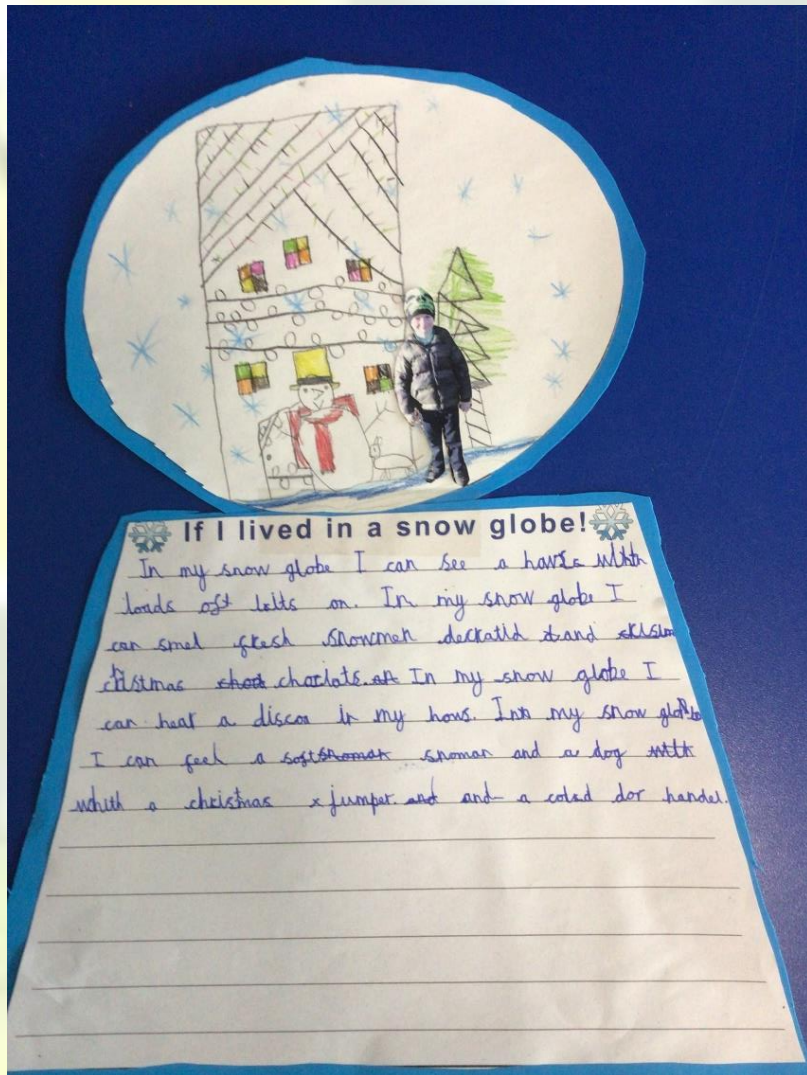 If I lived in a snow globe!
In my snow globe I can see a with
loads oft lits on. In my snow globe I
can smel fresh snowmen and
christmas choclats. In my snow globe I
can hear a disco in my hows. In my snow globe
I can feel a soft snoman and a dog
whith a christmas jumper and a cold dor handel.